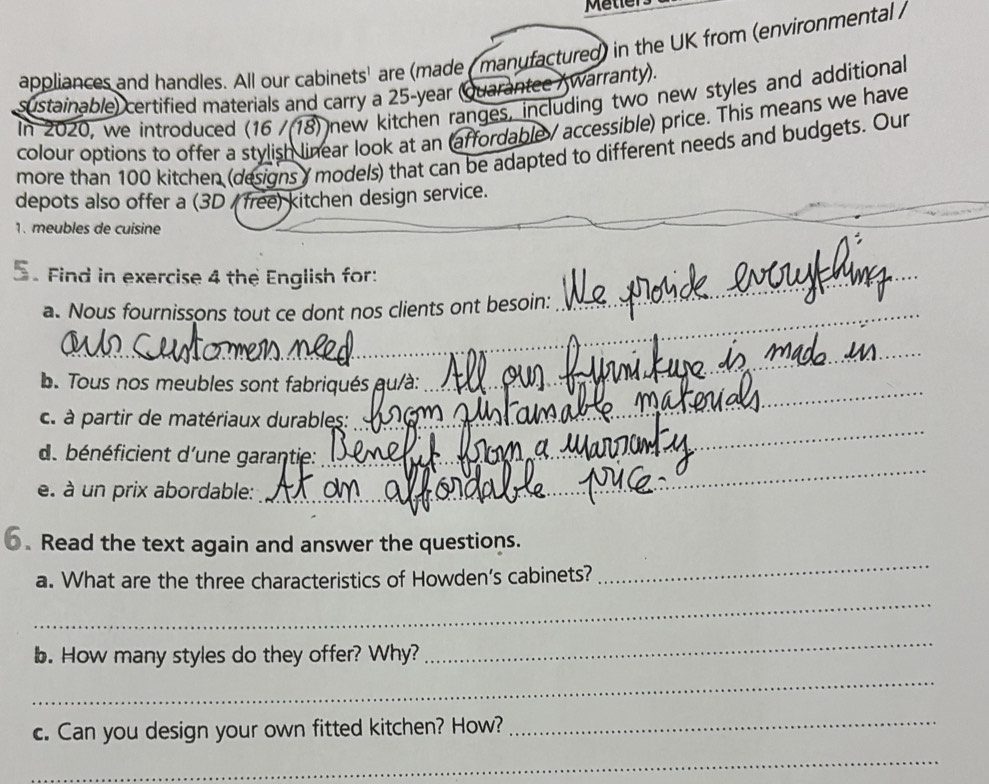 Métiers
appliances and handles. All our cabinets¹ are (made / manufactured) in the UK from (environmental /
sustainable) certified materials and carry a 25-year (guarantee / warranty).
In 2020, we introduced (16 / 18) new kitchen ranges, including two new styles and additional
colour options to offer a stylish linear look at an (affordable / accessible) price. This means we have
more than 100 kitchen (designs / models) that can be adapted to different needs and budgets. Our
depots also offer a (3D / free) kitchen design service.
1. meubles de cuisine
5. Find in exercise 4 the English for:
a. Nous fournissons tout ce dont nos clients ont besoin: We provide everything
our customers need
b. Tous nos meubles sont fabriqués au/à: All our furniture is made in
c. à partir de matériaux durables: from sustainable materials
d. bénéficient d'une garantie: Benefit from a warranty
e. à un prix abordable: At an affordable price.
6. Read the text again and answer the questions.
a. What are the three characteristics of Howden's cabinets?
b. How many styles do they offer? Why?
c. Can you design your own fitted kitchen? How?